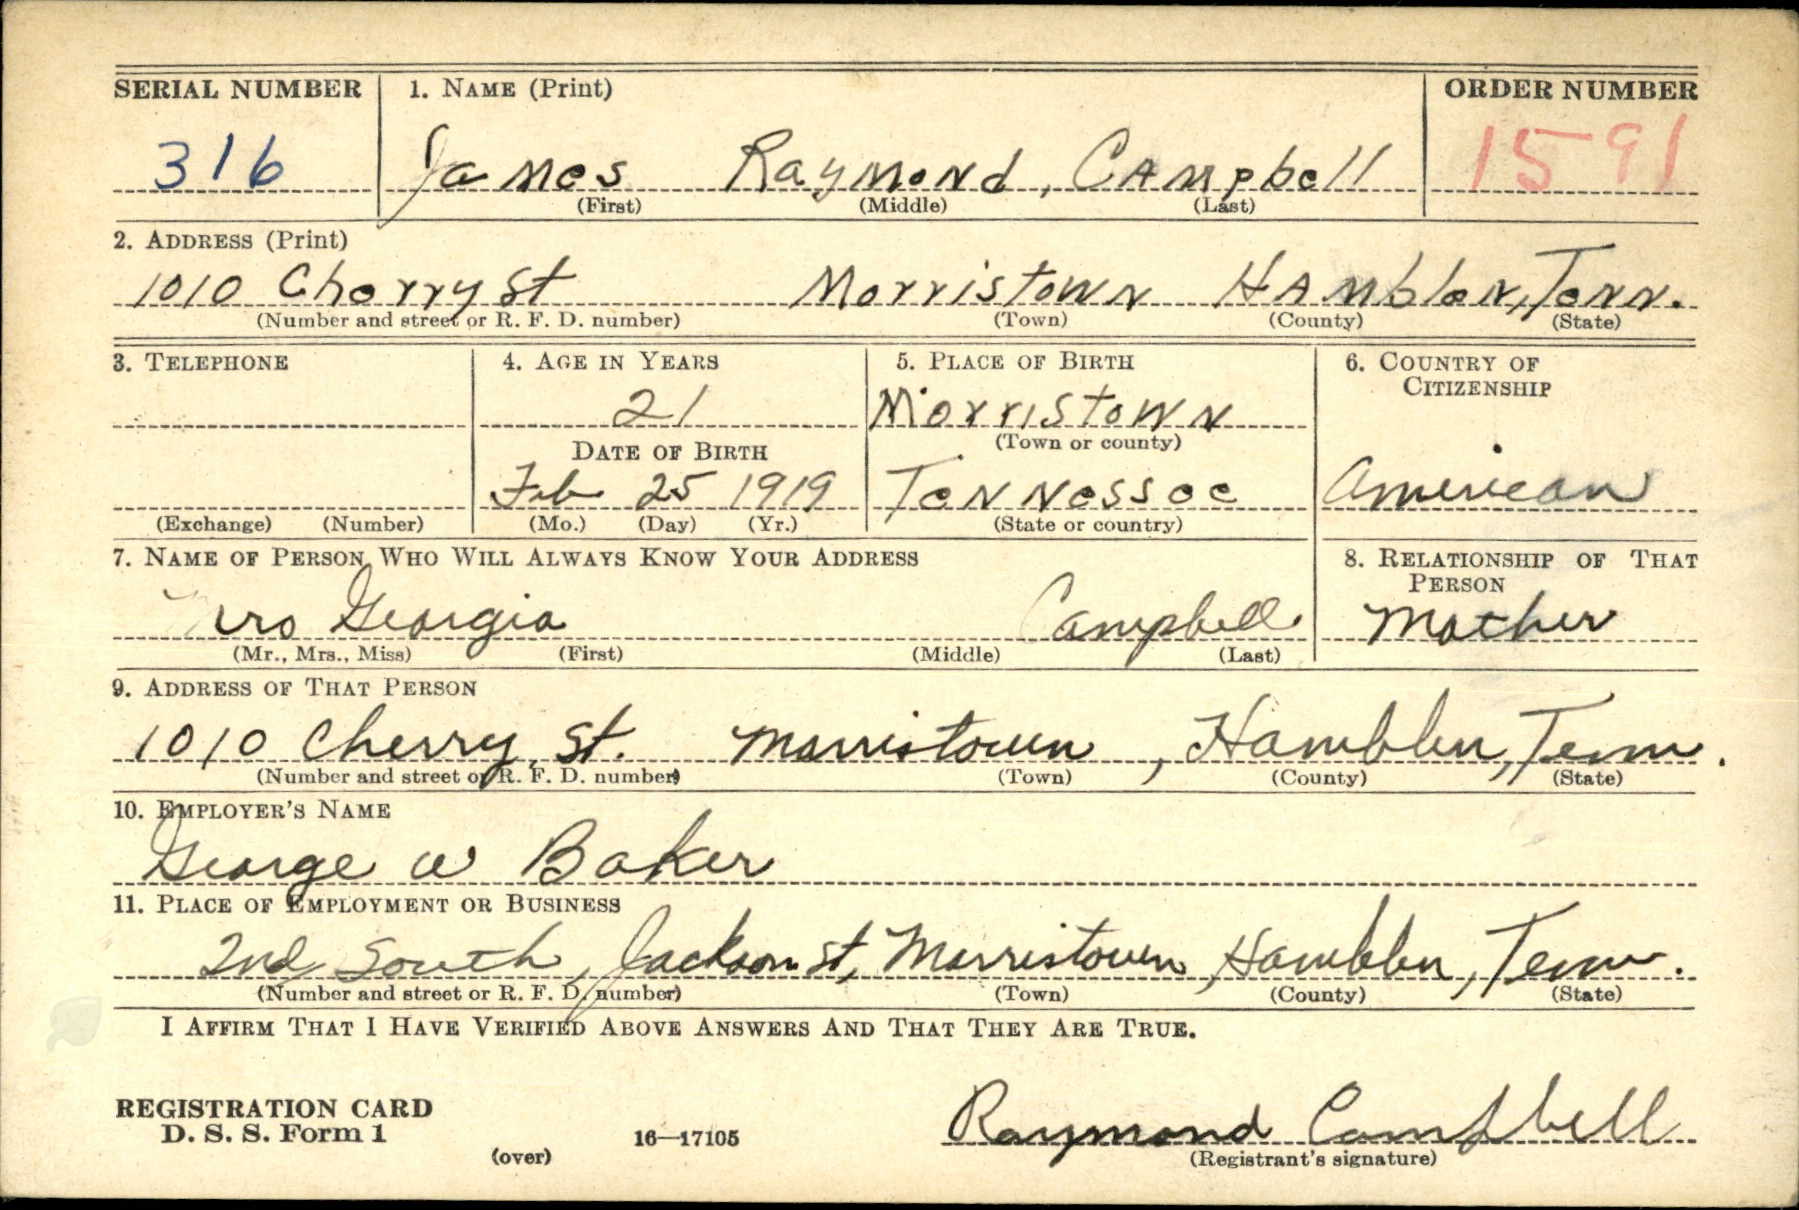 SERIAL NUMBER 1. NAME (Print) ORDER NUMBER
316 James Raymond, Campbell 1591
(First) (Middle) (Last)
2. ADDRESS (Print)
1010 Cherry St Morristown Hamblen, Tenn.
(Number and street or R. F. D. number) (Town) (County) (State)
3. TELEPHONE 4. AGE IN YEARS 5. PLACE OF BIRTH 6. COUNTRY OF
CITIZENSHIP
21 Morristown
(Town or county)
DATE OF BIRTH
Feb 25 1919 Tennessee American
(Exchange) (Number) (Mo.) (Day) (Yr.) (State or country)
7. NAME OF PERSON WHO WILL ALWAYS KNOW YOUR ADDRESS 8. RELATIONSHIP OF THAT
PERSON
Mrs Georgia Campbell Mother
(Mr., Mrs., Miss) (First) (Middle) (Last)
9. ADDRESS OF THAT PERSON
1010 Cherry, St. Morristown, Hamblen, Tenn.
(Number and street or R. F. D. number) (Town) (County) (State)
10. EMPLOYER'S NAME
George W Baker
11. PLACE OF EMPLOYMENT OR BUSINESS
2nd South, Jackson St, Morristown, Hamblen, Tenn.
(Number and street or R. F. D. number) (Town) (County) (State)
I AFFIRM THAT I HAVE VERIFIED ABOVE ANSWERS AND THAT THEY ARE TRUE.
REGISTRATION CARD
D. S. S. Form 1 16—17105 Raymond Campbell
(over) (Registrant's signature)